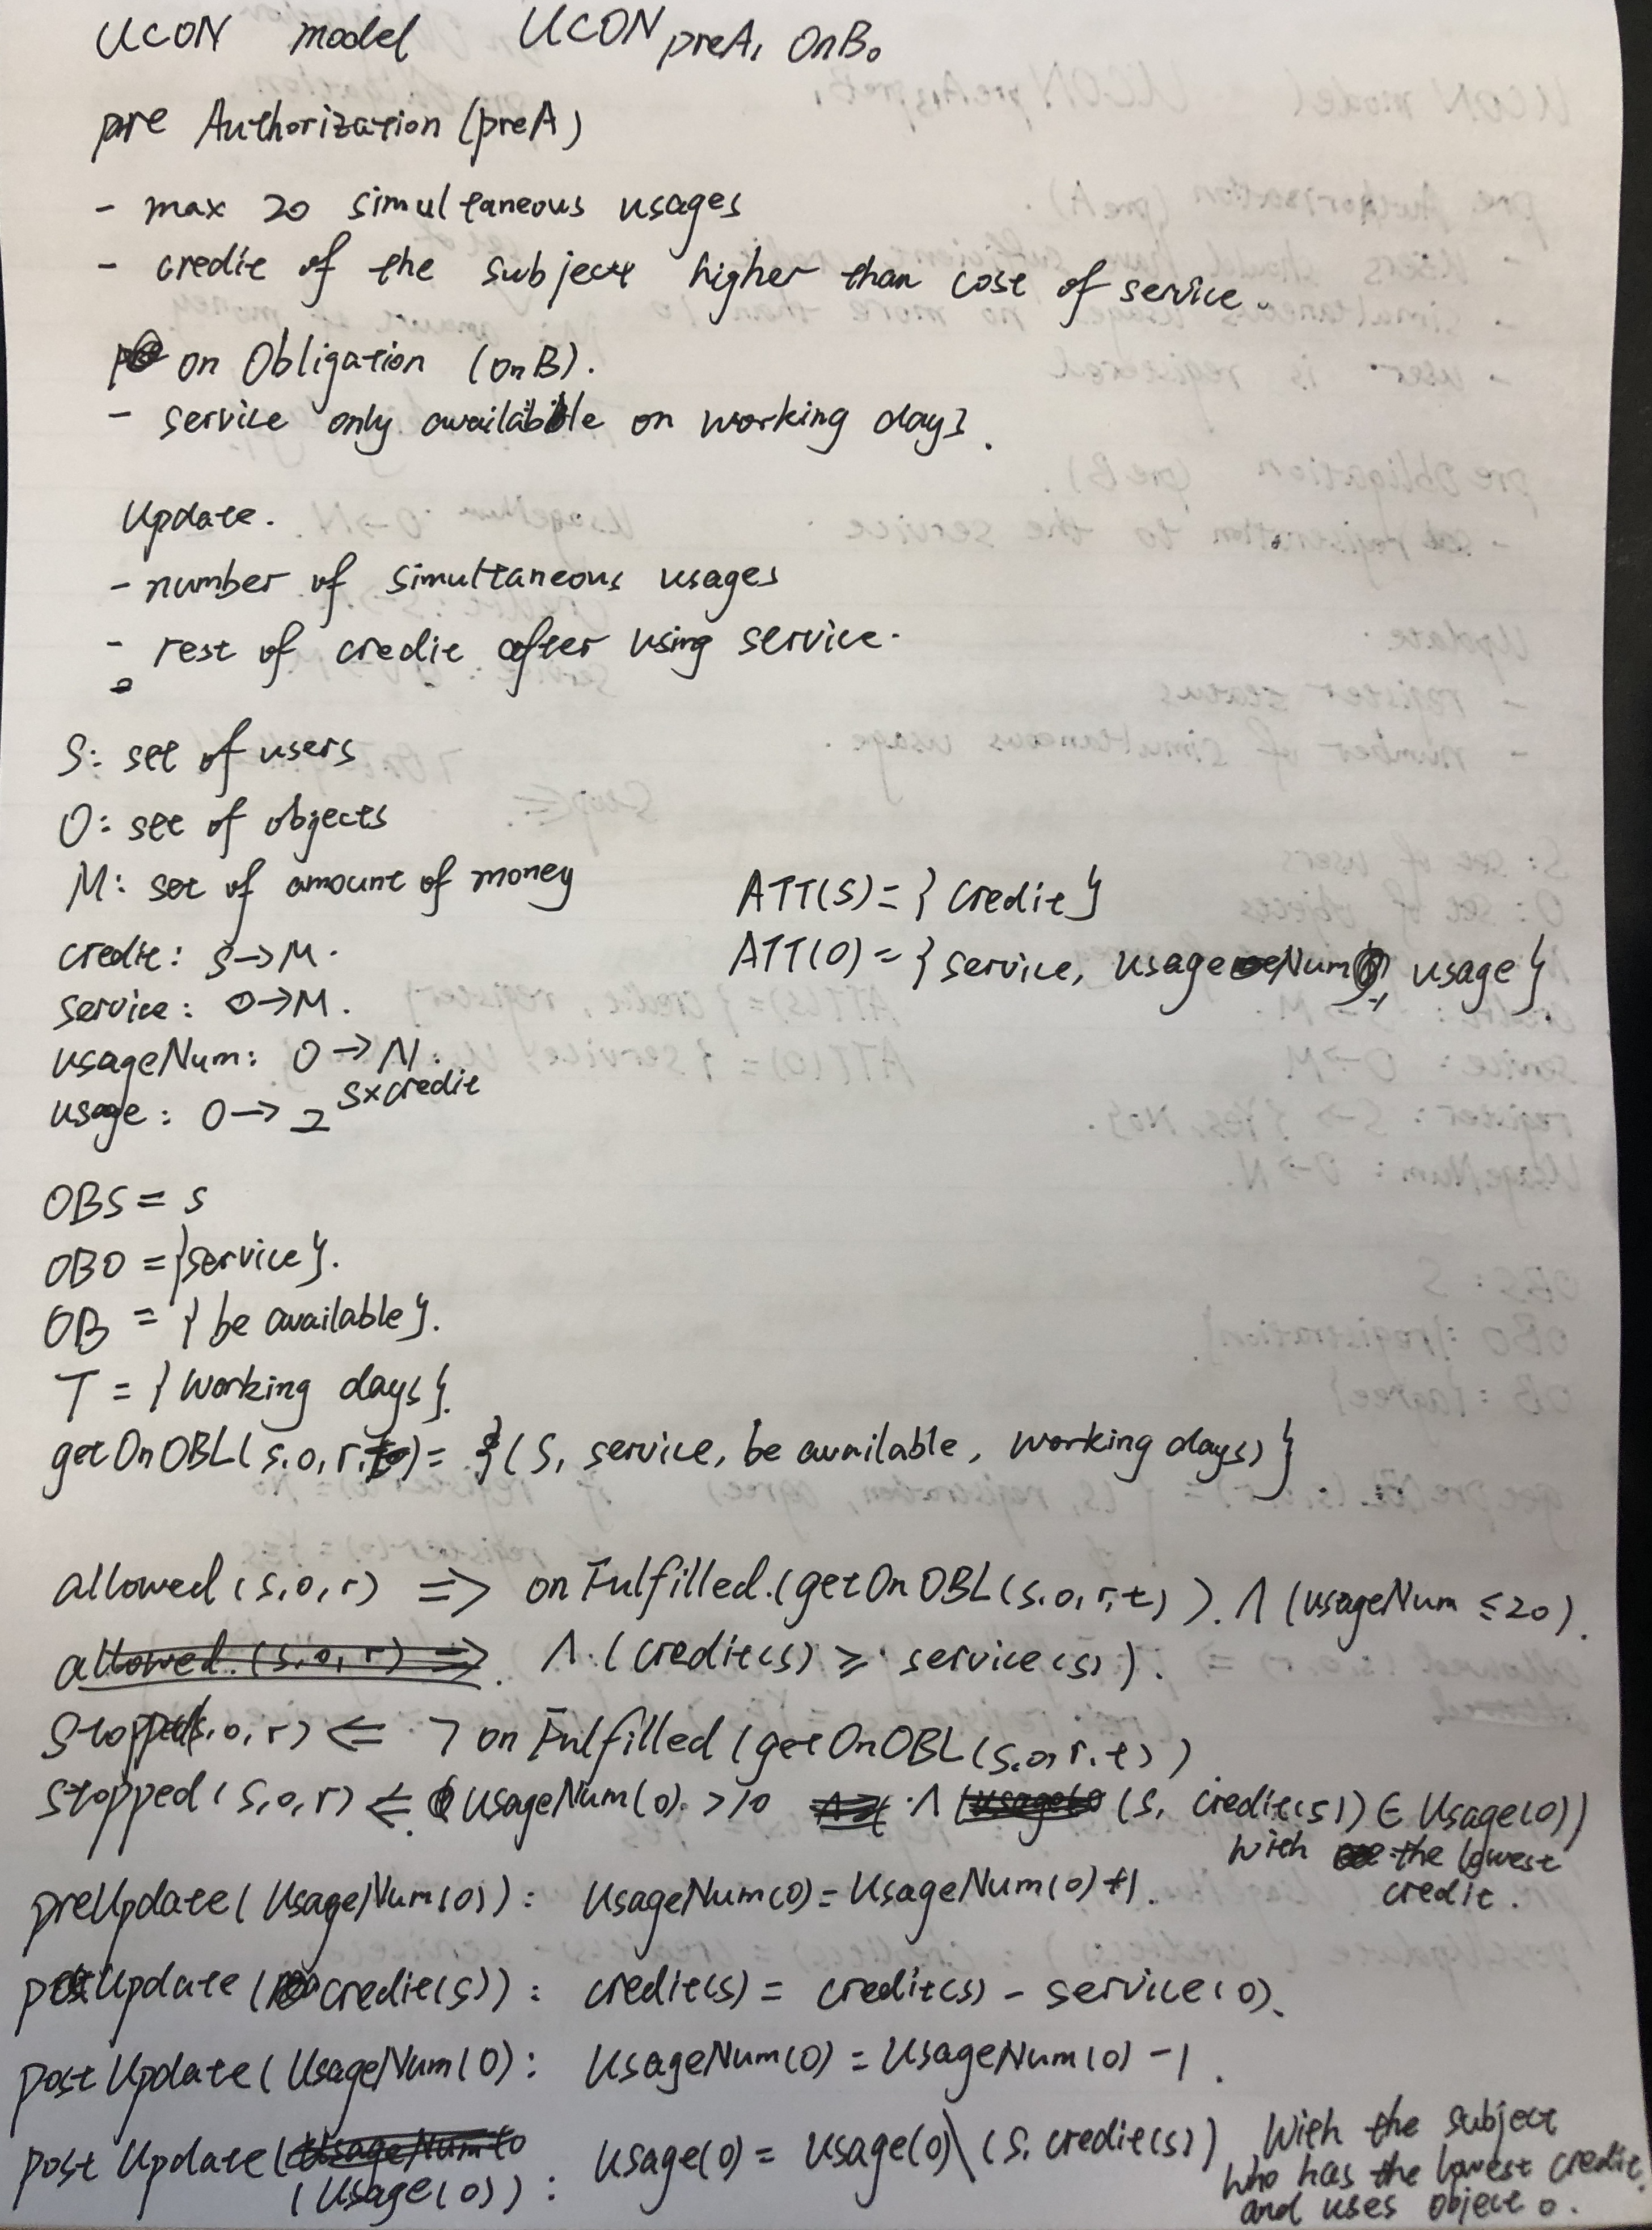 UCON model UCON preA₁ OnB₀
pre Authorization (preA)
- max 20 simultaneous usages
- credit of the subject higher than cost of service.
on Obligation (onB).
- service only available on working days.
Update.
- number of simultaneous usages
- rest of credit after using service.
S: set of users
O: set of objects
M: set of amount of money
credit: S→M.
service: O→M.
usageNum: O→N.
usage: O→2^S×credit
ATT(S)={credit}
ATT(O)={service, usageNum, usage}.
OBS = S
OBO ={service}.
OB = {be available}.
T = {working days}.
getOnOBL(s,o,r,t)= {(S, service, be available, working days)}
allowed (s,o,r) => onFulfilled.(getOnOBL(s,o,r,t)). ∧ (usageNum ≤20).
∧.(credit(s) ≥ service(s)).
Stopped(s,o,r) <= ¬ onFulfilled (getOnOBL(s,o,r,t))
stopped (s,o,r) <= usageNum(o) >10 ∧ (s, credit(s)) ∈ Usage(o))
with the lowest
credit.
preUpdate(UsageNum(o)): UsageNum(o)=UsageNum(o)+1.
postUpdate (credit(s)): credit(s) = credit(s) - service(o).
post Update (UsageNum(O): UsageNum(o) = UsageNum(o) -1.
post Update (Usage(o)): Usage(o) = Usage(o)\(s, credit(s)) With the subject
who has the lowest credit
and uses object o.